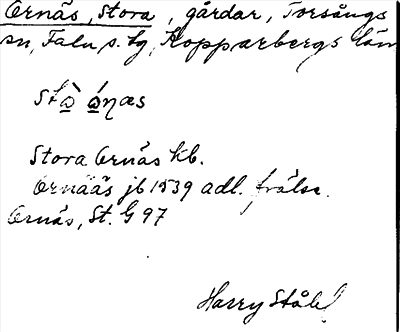 Ornäs, Stora, gårdar, Torsångs
sn, Falu s. tg, Kopparbergs län
stà ó̲ŋæs
Stora Ornäs kb.
Ornääs jb 1539 adl. frälse.
Ornäs, St. G 97
Harry Ståhl